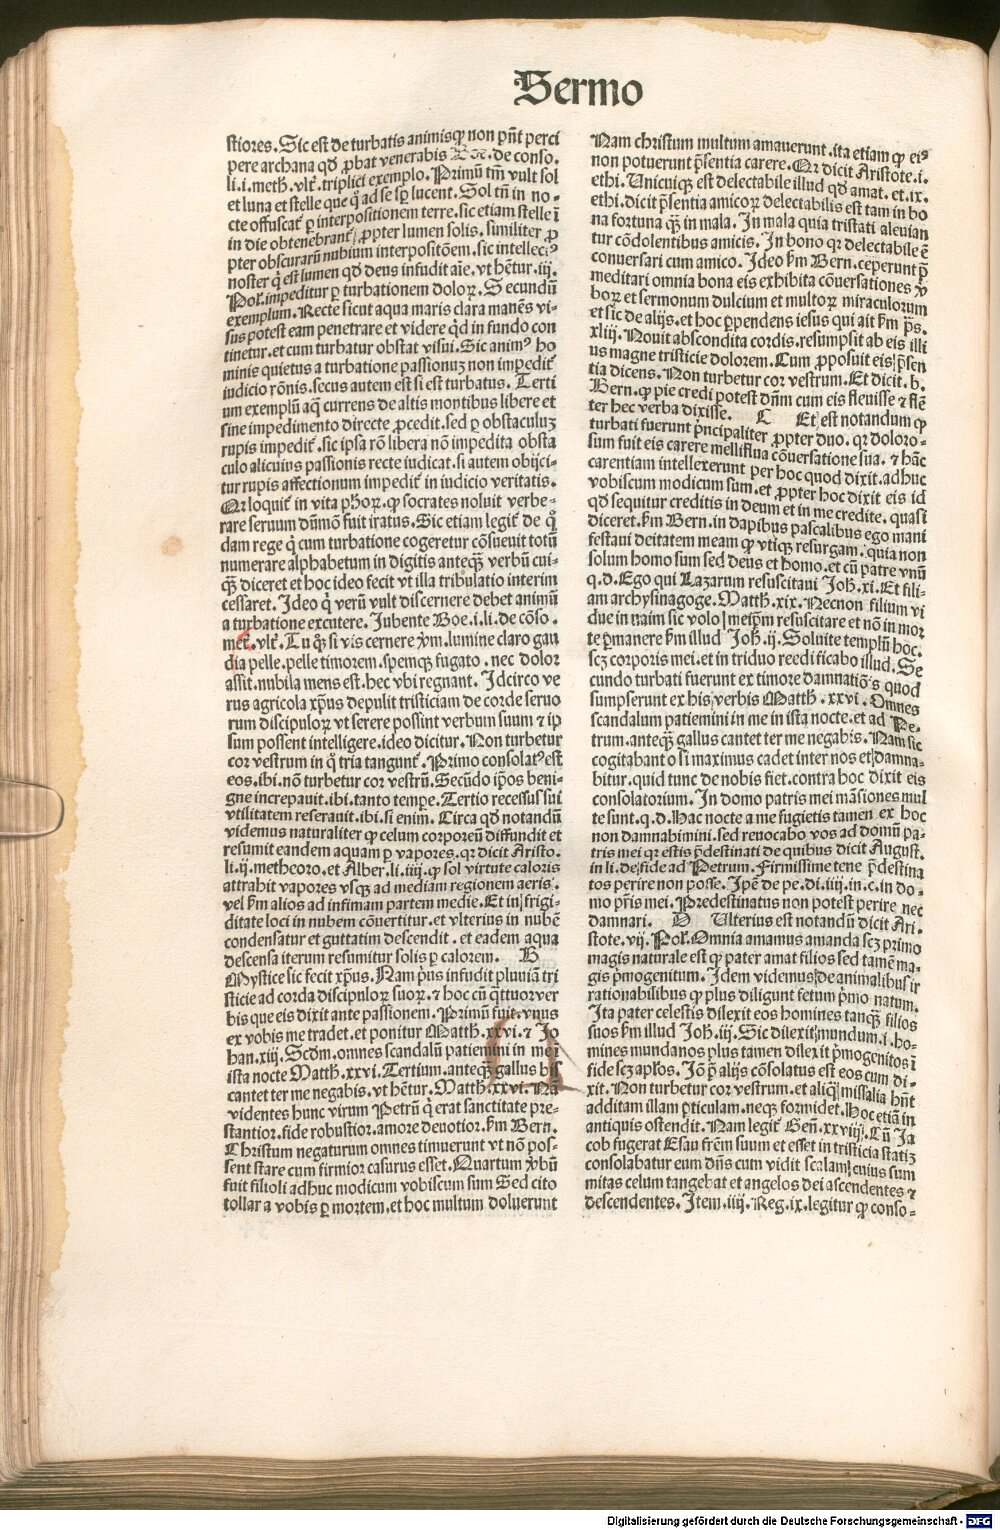 Sermo
stiores. Sic est de turbatis animisqꝫ non pn̄t perci
pere archana qd̄ ꝓbat venerabis Boe. de conso.
li.i.meth. vlt̄. triplici exemplo. Primū tm̄ vult sol
et luna et stelle que q̄ ad se sp̄ lucent. Sol tn̄ in no-
cte offuscat̄ ꝑ interpositionem terre. sic etiam stelle ī
in die obtenebrant̄ ꝓpter lumen solis. similiter ꝓ
pter obscurarū nubium interpositōem. sic intellecꝰ
noster q̄ est lumen qd̄ deus infudit aīe. vt hētur. iij.
Pol. impeditur ꝑ turbationem doloꝝ. Secundū
exemplum. Recte sicut aqua maris clara manēs vi-
sus potest eam penetrare et videre qd̄ in fundo con
tinetur. et cum turbatur obstat visui. Sic animꝰ ho
minis quietus a turbatione passionuꝫ non impedit̄
iudicio rōnis. secus autem est si est turbatus. Terti
um exemplū aq̄ currens de altis montibus libere et
sine impedimento directe ꝓcedit. sed ꝑ obstaculuꝫ
rupis impedit̄. sic ipsa rō libera nō impedita obsta
culo alicuius passionis recte iudicat. si autem obijci-
tur rupis affectionum impedit̄ in iudicio veritatis.
Qr̄ loquit̄ in vita ph̄oꝝ. ꝙ socrates noluit verbe-
rare seruum dūmō fuit iratus. Sic etiam legit̄ de q̊
dam rege q̇ cum turbatione cogeretur cōsueuit totū
numerare alphabetum in digitis anteqꝫ verbū cui-
qꝫ diceret et hoc ideo fecit vt illa tribulatio interim
cessaret. Ideo q̇ verū vult discernere debet animū
a turbatione excutere. Iubente Boe. i. li. de cōso.
met̄. vlt̄. Tu qꝫ si vis cernere ꝟm. lumine claro gau
dia pelle. pelle timorem. spemqꝫ fugato. nec dolor
assit. nubila mens est. hec vbi regnant. Idcirco ve
rus agricola xp̄us depulit tristiciam de corde seruo
rum discipuloꝝ vt serere possint verbum suum ⁊ ip
sum possent intelligere. ideo dicitur. Non turbetur
cor vestrum in q̊ tria tangunt̄. Primo consolatꝰ est
eos. ibi. nō turbetur cor vestrū. Secūdo ip̄os beni-
gne increpauit. ibi. tanto tempe. Tertio recessus sui
vtilitatem reserauit. ibi. si enim. Circa qd̄ notandū
videmus naturaliter ꝙ celum corporeū diffundit et
resumit eandem aquam ꝑ vapores. qr̄ dicit Aristo.
li. ij. metheoro. et Alber. li. iiij. ꝙ sol virtute caloris
attrahit vapores vsqꝫ ad mediam regionem aeris.
vel km̄ alios ad infimam partem medie. Et in frigi-
ditate loci in nubem cōuertitur. et vlterius in nubē
condensatur et guttatim descendit. et eadem aqua
descensa iterum resumitur solis ꝑ calorem. B
Mystice sic fecit xp̄us. Nam p̄us infudit pluuiā tri
sticie ad corda discipuloꝝ suoꝝ. ⁊ hoc cū qttuor ver
bis que eis dixit ante passionem. Primū fuit. vnus
ex vobis me tradet. et ponitur Matth. xxvi. ⁊ Jo
han. xiij. Scdm. omnes scandalū patiemini in me ī
ista nocte Matth. xxvi. Tertium. anteqꝫ gallus bis
cantet ter me negabis. vt hētur. Matth. xxvi. Nā
videntes hunc virum Petrū q̇ erat sanctitate pre-
stantior. fide robustior. amore deuotior. km̄ Bern.
Christum negaturum omnes timuerunt vt nō pos-
sent stare cum firmior casurus esset. Quartum ꝟbū
fuit filioli adhuc modicum vobiscum sum Sed cito
tollar a vobis ꝑ mortem. et hoc multum doluerunt
Nam christum multum amauerunt. ita etiam ꝙ eiꝰ
non potuerunt p̄sentia carere. Qr̄ dicit Aristote. i.
ethi. Unicuiqꝫ est delectabile illud qd̄ amat. et. ix.
ethi. dicit p̄sentia amicoꝝ delectabilis est tam in bo
na fortuna qꝫ in mala. In mala quia tristati aleuian
tur cōdolentibus amicis. In bono qr̄ delectabile ē
conuersari cum amico. Ideo km̄ Bern. ceperunt p̄
meditari omnia bona eis exhibita cōuersationes ꝟ
boꝝ et sermonum dulcium et multoꝝ miraculorum
et sic de alijs. et hoc ꝑpendens iesus qui ait km̄ p̄s.
xliij. Nouit abscondita cordis. resumpsit ab eis illi
us magne tristicie dolorem. Cum ꝓposuit eis p̄sen
tia dicens. Non turbetur cor vestrum. Et dicit. b.
Bern. ꝙ pie credi potest dn̄m cum eis fleuisse ⁊ flē
ter hec verba dixisse. C Et est notandum ꝙ
turbati fuerunt p̄ncipaliter ꝓpter duo. qr̄ doloro-
sum fuit eis carere melliflua cōuersatione sua. ⁊ hāc
carentiam intellexerunt per hoc quod dixit. adhuc
vobiscum modicum sum. et ꝓpter hoc dixit eis id
qd̄ sequitur creditis in deum et in me credite. quasi
diceret. km̄ Bern. in dapibus pascalibus ego mani
festaui deitatem meam ꝙ vtiqꝫ resurgam. quia non
solum homo sum sed deus et homo. et cū patre vnū
q.d. Ego qui Lazarum resuscitaui Joh. xi. Et fili-
am archysinagoge. Matth. xix. Necnon filium vi
due in naim sic volo meip̄m resuscitare et nō in mor
te ꝑmanere km̄ illud Joh. ij. Soluite templū hoc.
scꝫ corporis mei. et in triduo reedificabo illud. Se
cundo turbati fuerunt ex timore damnatiōis quod
sumpserunt ex his verbis Matth. xxvi. Omnes
scandalum patiemini in me in ista nocte. et ad Pe-
trum. anteqꝫ gallus cantet ter me negabis. Nam sic
cogitabant o si maximus cadet inter nos et damna-
bitur. quid tunc de nobis fiet. contra hoc dixit eis
consolatorium. In domo patris mei māsiones mul
te sunt. q.d. Hac nocte a me fugietis tamen ex hoc
non damnabimini. sed reuocabo vos ad domū pa-
tris mei qr̄ estis p̄destinati de quibus dicit August.
in li. de fide ad Petrum. Firmissime tene p̄destina
tos perire non posse. Ipē de pe. di. iiij. in. c. in do-
mo pr̄is mei. Predestinatus non potest perire nec
damnari. D Ulterius est notandū dicit Ari.
stote. vij. Pol. Omnia amamus amanda scꝫ primo
magis naturale est ꝙ pater amat filios sed tamē ma-
gis p̄mogenitum. Idem videmus de animalibus ir
rationabilibus ꝙ plus diligunt fetum p̄mo natum.
Ita pater celestis dilexit eos homines tanqꝫ filios
suos km̄ illud Joh. iij. Sic dilexit mundum. i. ho-
mines mundanos plus tamen dilexit p̄mogenitos ī
fide scꝫ apl̄os. Jō p̄ alijs cōsolatus est eos cum di-
xit. Non turbetur cor vestrum. et aliq̄ missalia hn̄t
additam illam ꝑticulam. neqꝫ formidet. Hoc etiā in
antiquis ostendit. Nam legit̄ Gen̄. xxviij. Cū Ja
cob fugerat Esau frēm suum et esset in tristicia statiꝫ
consolabatur eum dn̄s cum vidit scalam cuius sum
mitas celum tangebat et angelos dei ascendentes ⁊
descendentes. Item. iiij. Reg. ix. legitur ꝙ conso-
Digitalisierung gefördert durch die Deutsche Forschungsgemeinschaft - DFG